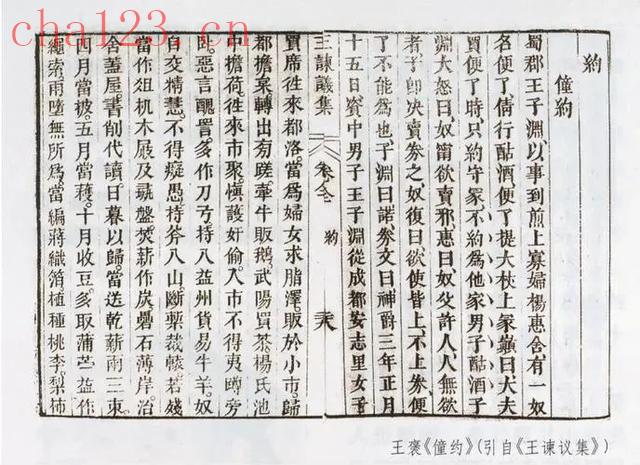 cha123.cn
約
僮約
蜀郡王子淵以事到煎上寡婦楊惠舍有一奴
名便了倩行酤酒便了提大杖上冢巔曰大夫
買便了時只約守冢不約爲他家男子酤酒子
淵大怒曰奴甯欲賣邪惠曰奴父許人人無欲
者子卽決賣券之奴復曰欲使皆上不上券便
了不能爲也子淵曰諾券文曰神爵三年正月
十五日資中男子王子淵從成都安志里女子
王諫議集 卷全 約
買席徃來都洛當爲婦女求脂澤販於小市歸
都擔枲轉出旁蹉牽牛販鵝武陽買茶楊氏池
中擔荷徃來市聚愼護奸偷入市不得夷蹲旁
臥惡言醜詈多作刀弓持入益州貨易牛羊奴
自交精慧不得癡愚持斧入山斷輮裁轅若殘
當作俎机木屐及彘盤焚薪作炭礨石薄岸治
舍蓋屋書削代讀日暮以歸當送乾薪兩三束
四月當披五月當穫十月收豆多取蒲苎益作
繩索雨墮無所爲當編蔣織箔植種桃李梨柿
王褒《僮约》(引自《王谏议集》)